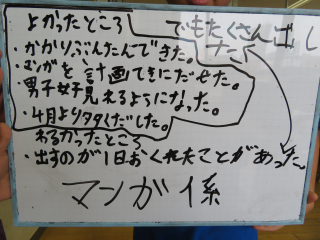 よかったところ
でもたくさん出し
た
・かかりぶんたんでできた。
・マンガを計画てきにだせた。
・男子女子見えるようになった。
・4月よりタタくだした。
わるかったところ
・出すのが1日おくれたことがあった。
マンガ係